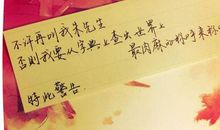 不许再叫我朱先生
否则我要从字典上查出世界上
最肉麻的称呼来称
特此警告